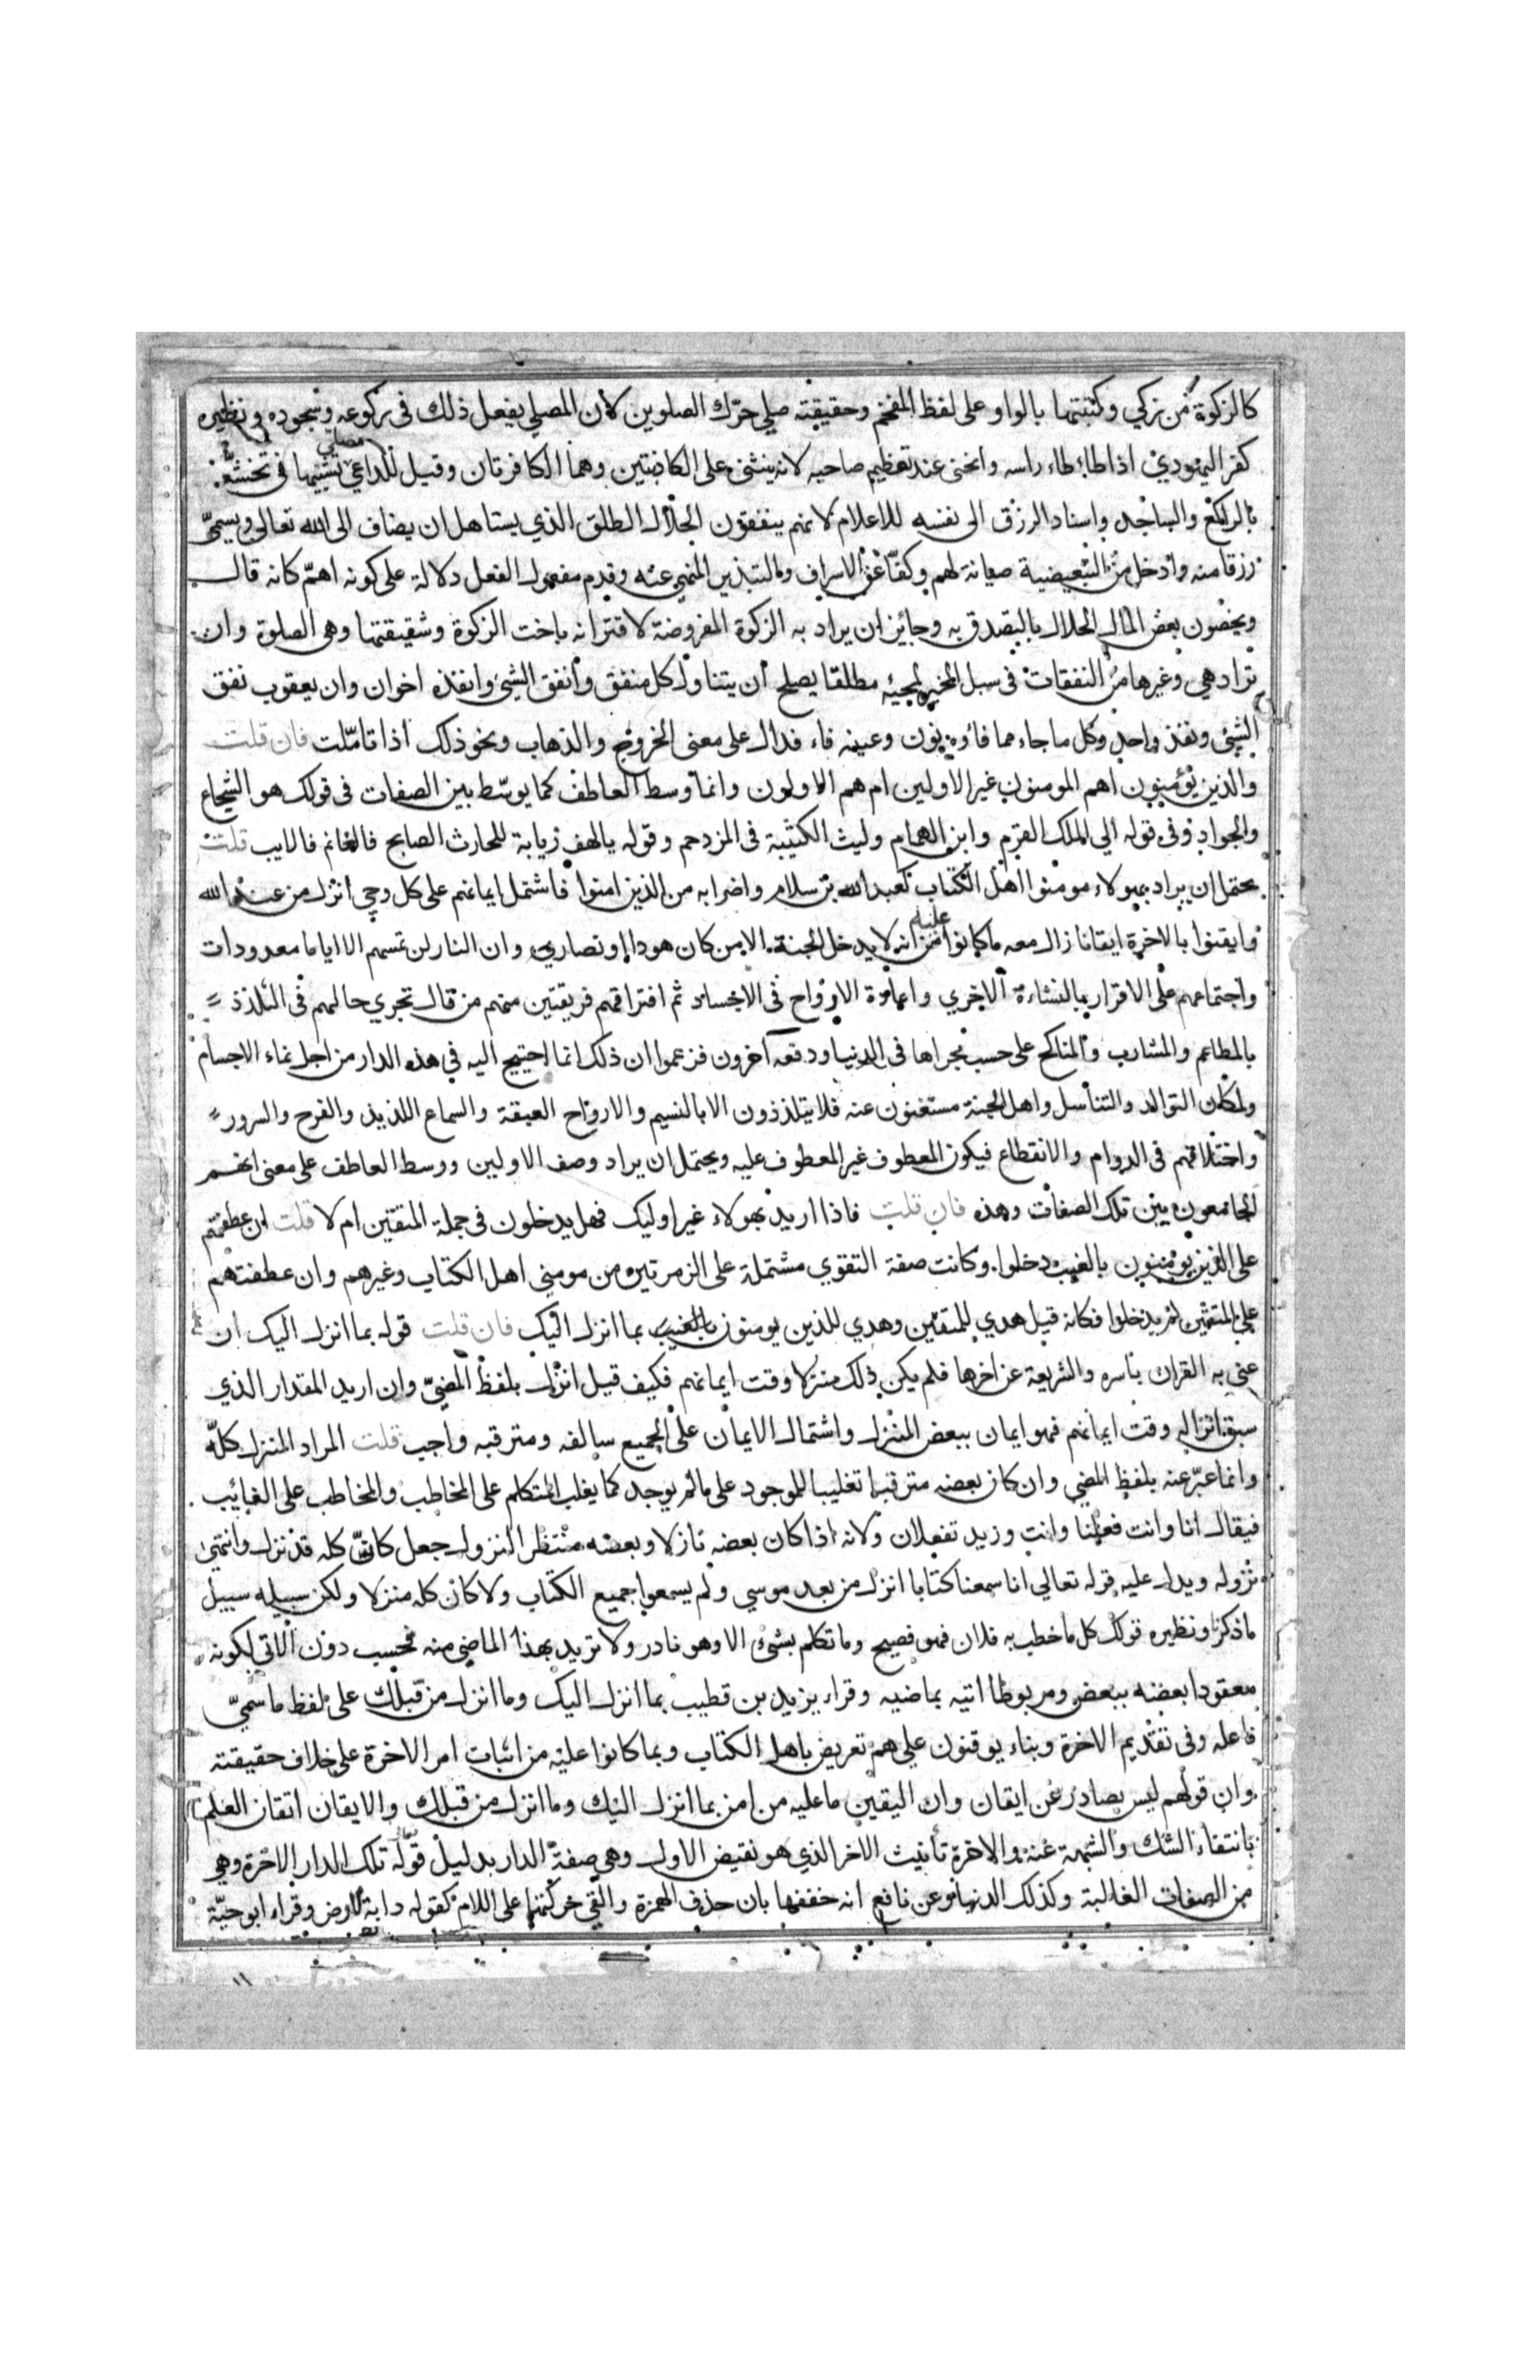 كالزكوة من زكي وكتبتها بالواو على لفظ المفخم وحقيقته صلي حرّك الصلوين لان المصلي يفعل ذلك فى ركوعه وسجوده ونظيره
كفر اليهودي اذا طاطاء راسه وانحنى عند تعظيم صاحبه لانه ينثنى على الكاذتين وهما الكافرتان وقيل للداعي مصلي تشبيها فى تخشعه
بالراكع والساجد واسناد الرزق الى نفسه للاعلام لانهم ينفقون الحلال الطلق الذي يستاهل ان يضاف الى الله تعالى ويسمىّ
رزقا منه وادخل من التبعيضية صيانة لهم وكفّا عن الاسراف والتبذير المنهي عنه وقدم مفعول الفعل دلالة على كونه اهمّ كانه قال
ويخصون بعض المال الحلال بالتصدق به وجايز ان يراد به الزكوة المفروضة لاقترانه باخت الزكوة وشقيقتها وهى الصلوة وان
تراد هي وغيرها من النفقات فى سبل الخير لمجيئه مطلقا يصلح ان يتناول كل منفق وانفق الشيئ وانفذه اخوان وان يعقوب نفق
الشيئ ونفذ واحد وكل ما جاء مما فاؤه نون وعينه فاء فدال على معنى الخروج والذهاب ونحو ذلك اذا تامّلت فان قلت
والذين يؤمنون اهم المومنون غير الاولين ام هم الاولون وانما وسط العاطف كما يوسّط بين الصفات فى قولك هو الشجاع
والجواد وفى قوله الى الملك القرم وابن الهمام وليث الكتيبة فى المزدحم وقوله يالهف زيابة للحارث الصابح فالغانم فالايب قلت
يحتمل ان يراد بهولاء مومنوا اهل الكتاب كعبد الله بن سلام واضرابه من الذين امنوا فاشتمل ايمانهم على كل وحي انزل من عند الله
وايقنوا بالاخرة ايقانا زال معه ما كانوا عليه من انه لا يدخل الجنة الا من كان هودا او نصارى وان النار لن تمسهم الا اياما معدودات
واجتماعهم على الاقرار بالنشاءة الاخري واعادة الارواح فى الاجساد ثم افتراقهم فريقين منهم من قال تجري حالهم فى التلذذ
بالمطاعم والمشارب والمناكح على حسب مجراها فى الدنيا ودفعه آخرون فزعموا ان ذلك انما احتيج اليه فى هذه الدار من اجل نماء الاجسام
ولمكان التوالد والتناسل واهل الجنة مستغنون عنه فلا يتلذذون الا بالنسيم والارواح العبقة والسماع اللذيذ والفرح والسرور
واختلافهم فى الدوام والانقطاع فيكون المعطوف غير المعطوف عليه ويحتمل ان يراد وصف الاولين ووسط العاطف على معنى انهم
الجامعون بين تلك الصفات وهذه فان قلت فاذا اريد بهولاء غير اوليك فهل يدخلون فى جملة المتقين ام لا قلت ان عطفتهم
على الذين يؤمنون بالغيب دخلوا وكانت صفة التقوي مشتملة على الزمرتين من مومنى اهل الكتاب وغيرهم وان عطفتهم
على المتقين لم يدخلوا فكانه قيل هدي للمتقين وهدي للذين يومنون بالغيب بما انزل اليك فان قلت قوله بما انزل اليك ان
عنى به القران باسره والشريعة عن اخرها فلم يكن ذلك منزلا وقت ايمانهم فكيف قيل انزل بلفظ المضىّ وان اريد المقدار الذي
سبق انزاله وقت ايمانهم فهو ايمان ببعض المنزل واشتمال الايمان على الجميع سالفه ومترقبه واجب قلت المراد المنزل كلّه
وانما عبّر عنه بلفظ المضي وان كان بعضه مترقبا تغليبا للموجود على مالم يوجد كما يغلب المتكلم على المخاطب والمخاطب على الغائيب
فيقال انا وانت فعلنا وانت وزيد تفعلان ولانه اذا كان بعضه نازلا وبعضه منتظر النزول جعل كانّ كله قد نزل وانتهى
نزوله ويدل عليه قوله تعالي انا سمعنا كتابا انزل من بعد موسي ولم يسمعوا جميع الكتاب ولا كان كله منزلا ولكن سبيله سبيل
ما ذكرنا ونظيره قولك كل ما خطب به فلان فهو فصيح وما تكلم بشئ الا وهو نادر ولا تريد بهذا الماضي منه فحسب دون الاتي لكونه
معقودا بعضه ببعض ومربوطا اتيه بماضيه وقراء يزيد بن قطيب بما انزل اليك وما انزل من قبلك على لفظ ما سمىّ
فاعله وفى تقديم الاخرة وبناء يوقنون على هم تعريض باهل الكتاب وبما كانوا عليه من اثبات امر الاخرة على خلاف حقيقته
وان قولهم ليس بصادر عن ايقان وان اليقين ما عليه من امن بما انزل اليك وما انزل من قبلك والايقان اتقان العلم
بانتفاء الشك والشبهة عنه والاخرة تأنيث الاخر الذي هو نقيض الاول وهى صفة الدار بدليل قوله تلك الدار الاخرة وهي
من الصفات الغالبة وكذلك الدنيا وعن نافع انه خففها بان حذف الهمزة والقي حركتها على اللام كقوله دابة لارض وقراء ابو حيّة